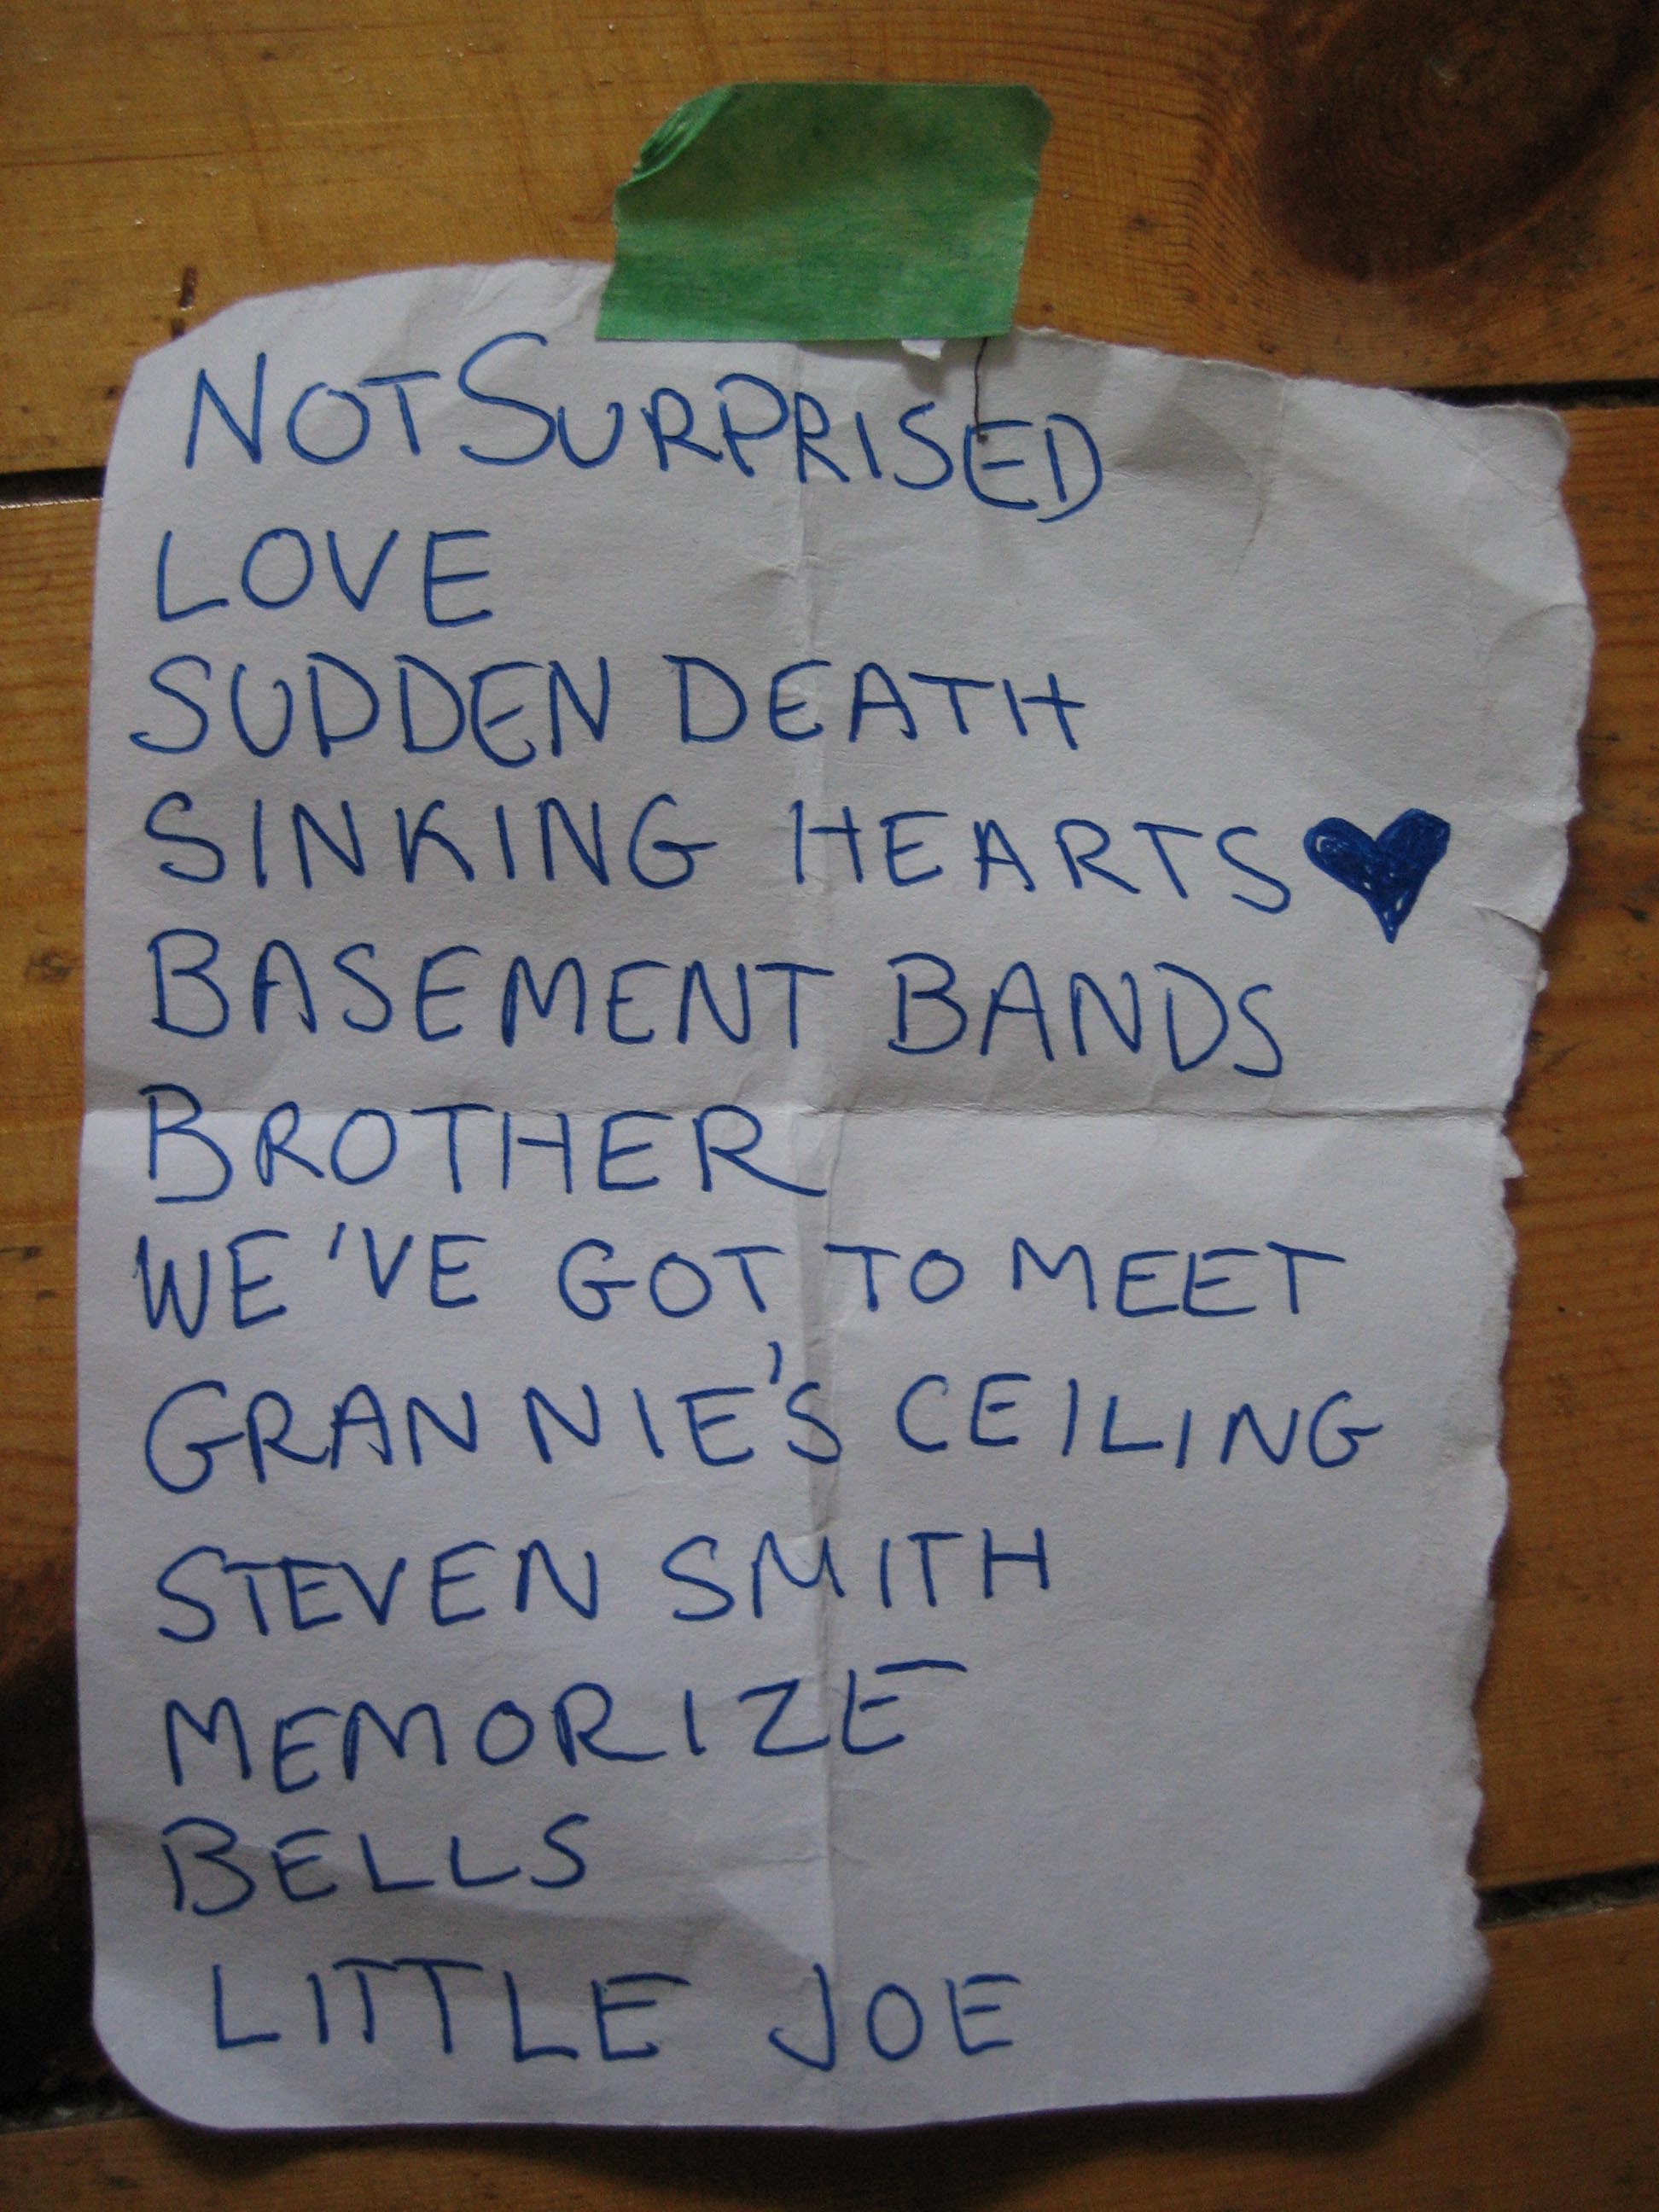 NOT SURPRISED
LOVE
SUDDEN DEATH
SINKING HEARTS
BASEMENT BANDS
BROTHER
WE'VE GOT TO MEET
GRANNIE'S CEILING
STEVEN SMITH
MEMORIZE
BELLS
LITTLE JOE